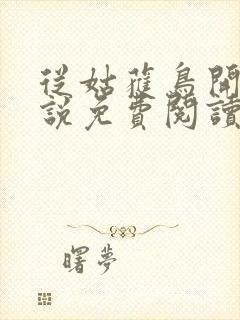 從姑獲鳥開
說免費閱讀
曙夢